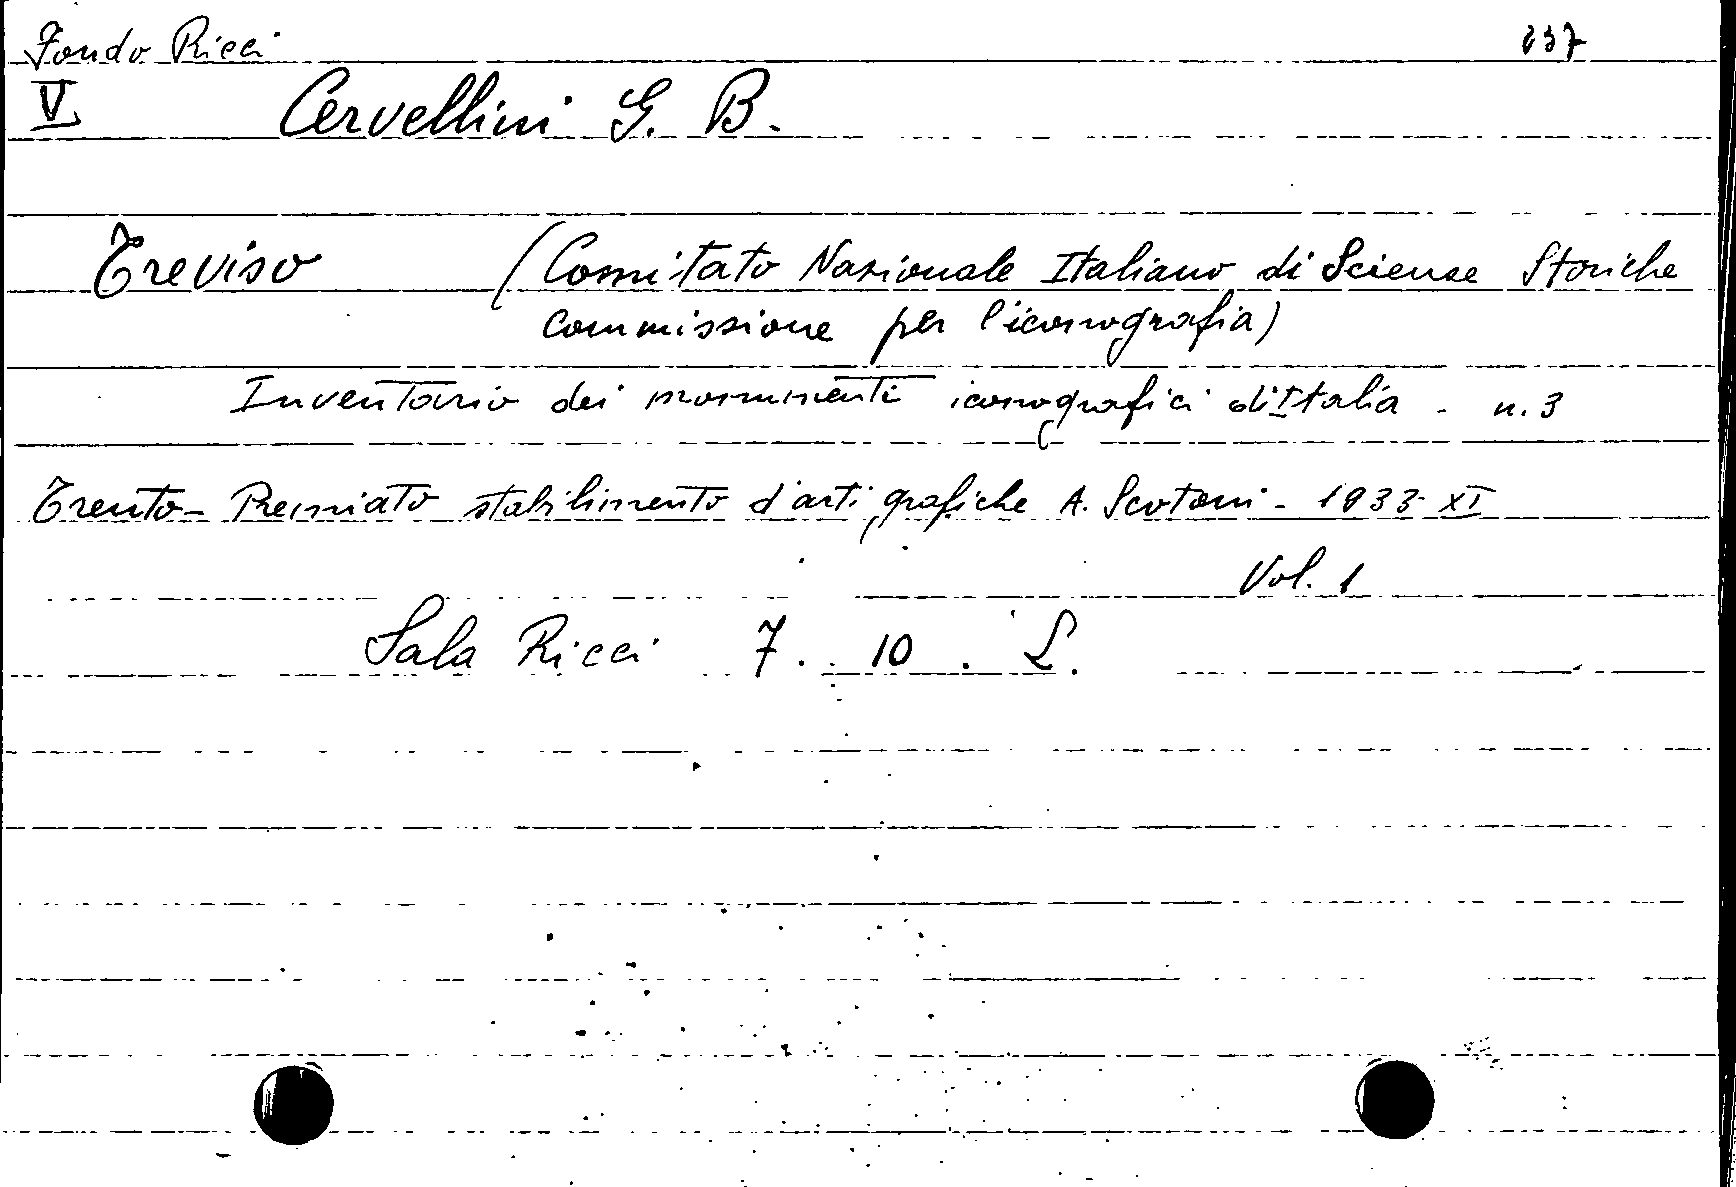 Fondo Ricci 237
V Cervellini G. B.
Treviso (Comitato Nazionale Italiano di Scienze Storiche
commissione per l'iconografia)
Inventario dei monumenti iconografici d'Italia - n. 3
Trento - Premiato stabilimento d'arti grafiche A. Scotoni - 1933 XI
Vol. 1
Sala Ricci 7. 10. L.